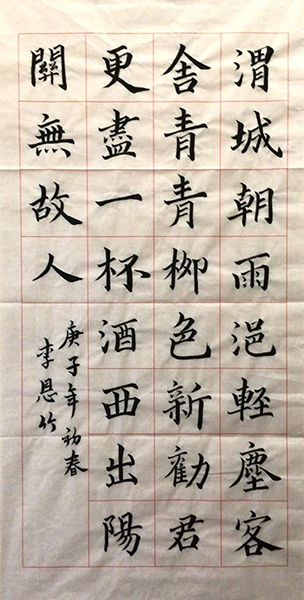 渭城朝雨浥輕塵客
舍青青柳色新勸君
更盡一杯酒西出陽
關無故人
庚子年初春
李恩竹